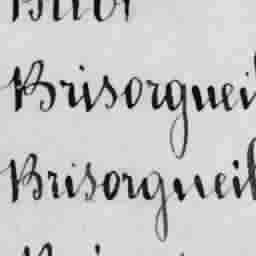 Brisorgueil
Brisorgueil